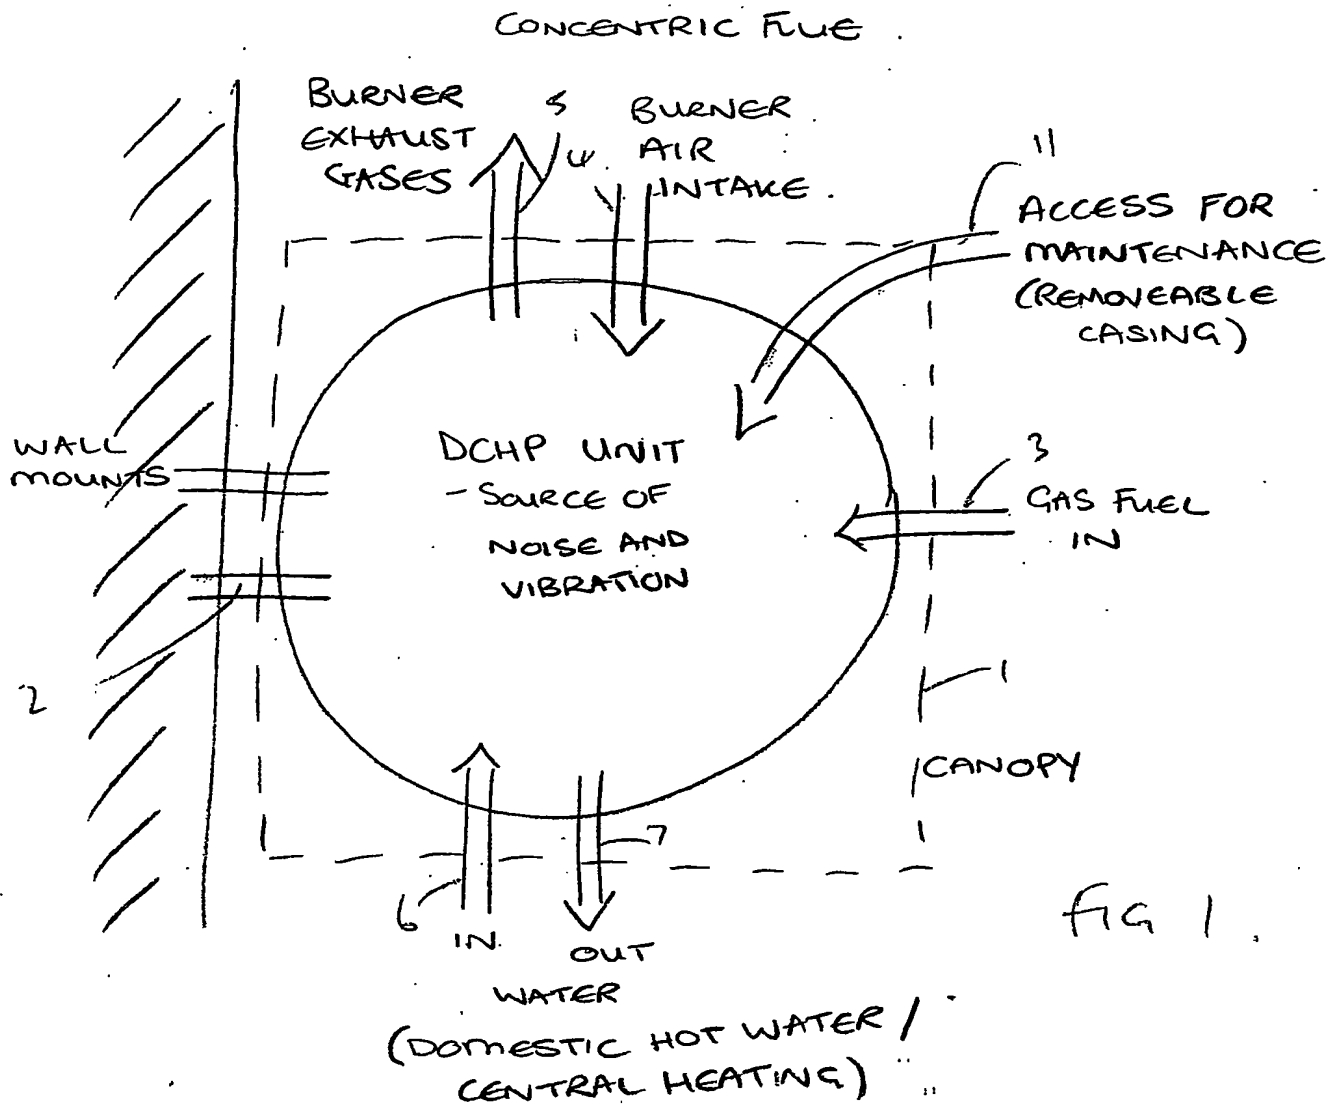 CONCENTRIC FLUE.
BURNER
EXHAUST
GASES
5
4
BURNER
AIR
INTAKE.
11
ACCESS FOR
MAINTENANCE
(REMOVEABLE
CASING)
WALL
MOUNTS
DCHP UNIT
- SOURCE OF
NOISE AND
VIBRATION
3
GAS FUEL
IN
2
1
CANOPY
7
6
IN.
OUT
WATER
(DOMESTIC HOT WATER /
CENTRAL HEATING)
FIG 1.